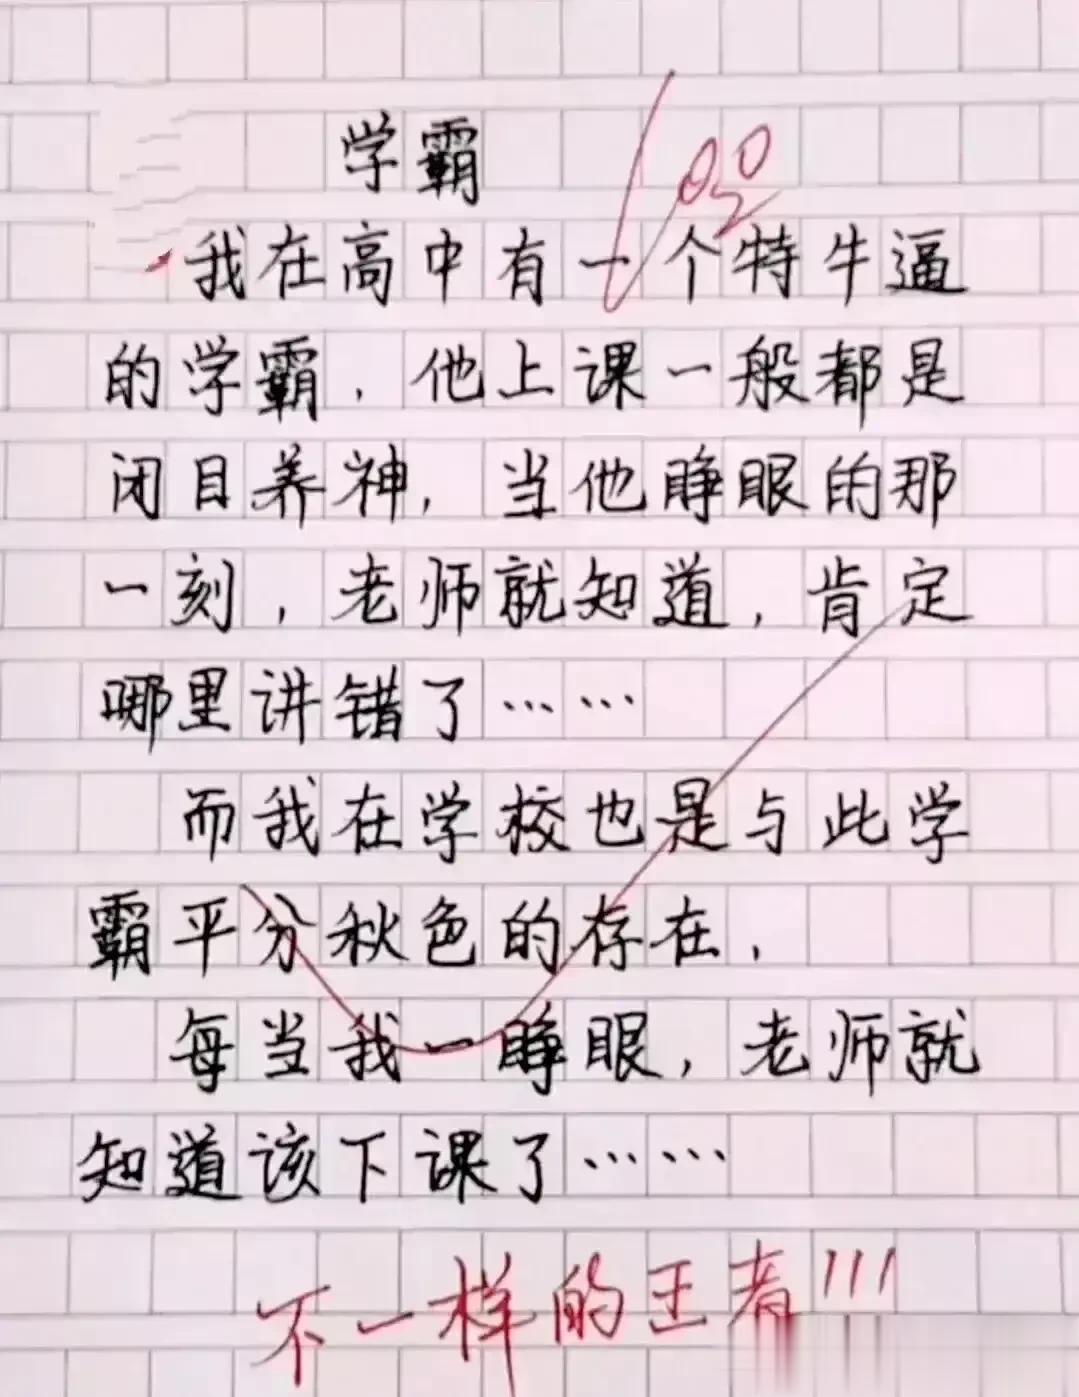 学霸
100
我在高中有一个特牛逼
的学霸，他上课一般都是
闭目养神，当他睁眼的那
一刻，老师就知道，肯定
哪里讲错了……
而我在学校也是与此学
霸平分秋色的存在，
每当我一睁眼，老师就
知道该下课了……
不一样的王者!!!